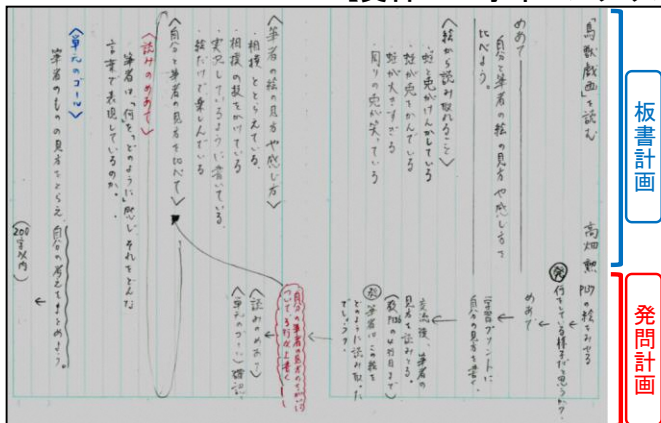 「鳥獣戯画」を読む　高畑勲
めあて
自分と筆者の絵の見方や感じ方を
比べよう。
〈絵から読み取れること〉
・蛙と兎がけんかしている
・蛙が兎をかんでいる
・蛙が大きすぎる
・周りの兎が笑っている
〈筆者の絵の見方や感じ方〉
・相撲ととらえている。
・相撲の技をかけている
・実況しているように書いている。
・絵だけで楽しんでいる
〈自分と筆者の見方を比べて〉
〈読みのめあて〉
筆者は、「何を」「どのように」感じ、それをどんな
言葉で表現しているのか。
〈単元のゴール〉
筆者のものの見方をとらえ、自分の考えをまとめよう。
(200字以内)
の絵をみせる
発 何をしている様子だと思うか？
めあて
学習プリントに
自分の見方を書く。
交流後、筆者の
見方を読みとる。
筆者は、この絵を
どのように読み取った
でしょうか。
自分と筆者の見方のちがいに
ついて
〈読みのめあて〉
〈単元のゴール〉確認
板書計画
発問計画